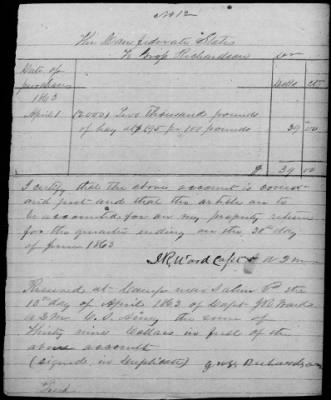 No 12
The Confederate States
To Richardson Dr
Date of
purchase
1863
Dolls Cts
April 1 (2000) Two Thousand pounds
of hay at $1.95 pr 100 pounds 39 00
$ 39 00
I certify that the above account is correct
and just and that the articles are to
be accounted for on my property return
for the quarter ending on the 30th day
of June 1863
J R Ward Capt & A Q M
Received at Camp near Salem the
day of April 1863 of Capt J R Ward
A Q M C. S. Army the sum of
Thirty nine Dollars in full of the
above account
(signed in Duplicate) Richardson